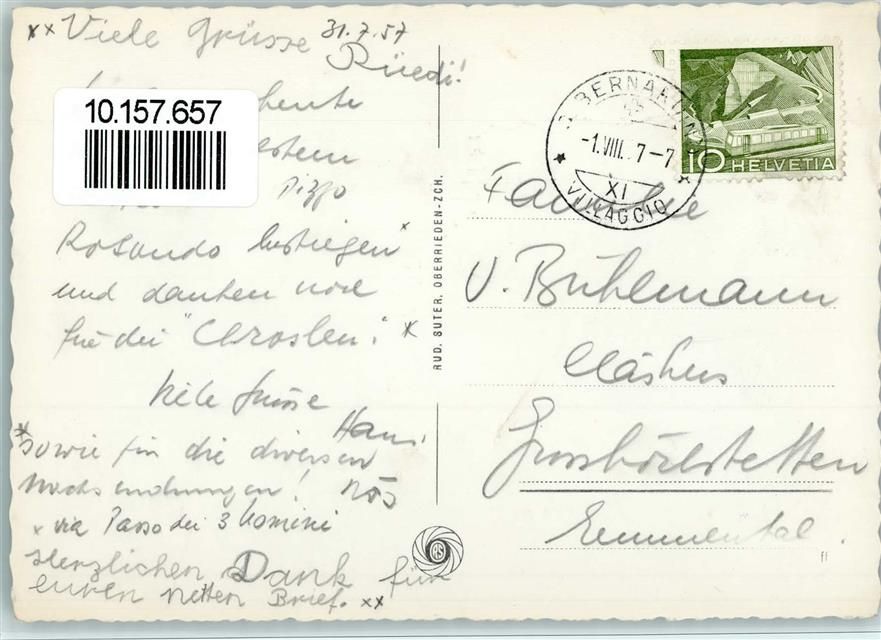 xx Viele Grüsse 31.7.57
Rüedi!
10.157.657
heute
Pizzo
bestiegen x
und danken noch
für die "Chroslen". x
Viele Grüsse
Hans
x sowie für die diversen
Nachsendungen! Rös
x via Passo dei 3 Uomini
Herzlichen Dank für
euren netten Brief. xx
RUD. SUTER, OBERRIEDEN-ZCH.
RS
S. BERNARDINO
-1.VIII.57-7
XI
VILLAGGIO
10 HELVETIA
Familie
U. Bühlmann
Grosshöchstetten
Emmental.
ff